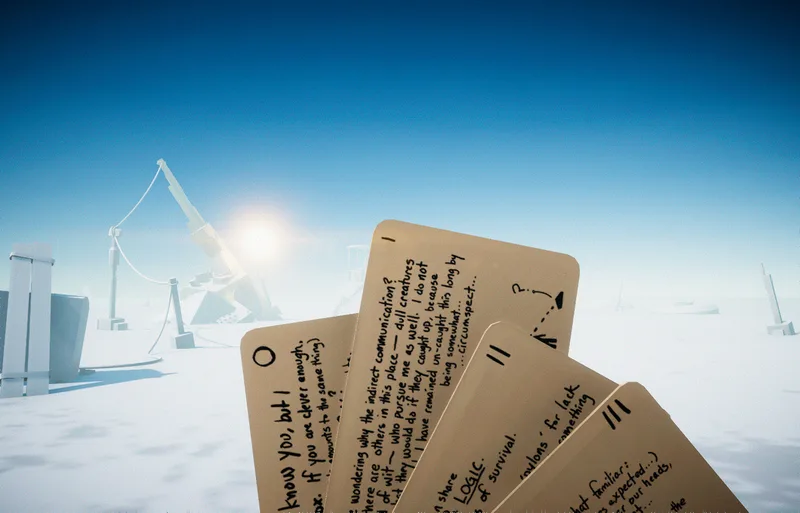 O
know you, but I
ox. If you are clever enough,
amounts to the same thing)
?
I
wondering why the indirect communication?
here are others in this place — dull creatures
of wit — who pursue me as well. I do not
they would do if they caught up, because
I have remained un-caught this long by
being somewhat...
...circumspect...
?
II
share
LOGIC.
s of survival.
for lack
something
III
familiar:
expected...)
our heads,
the